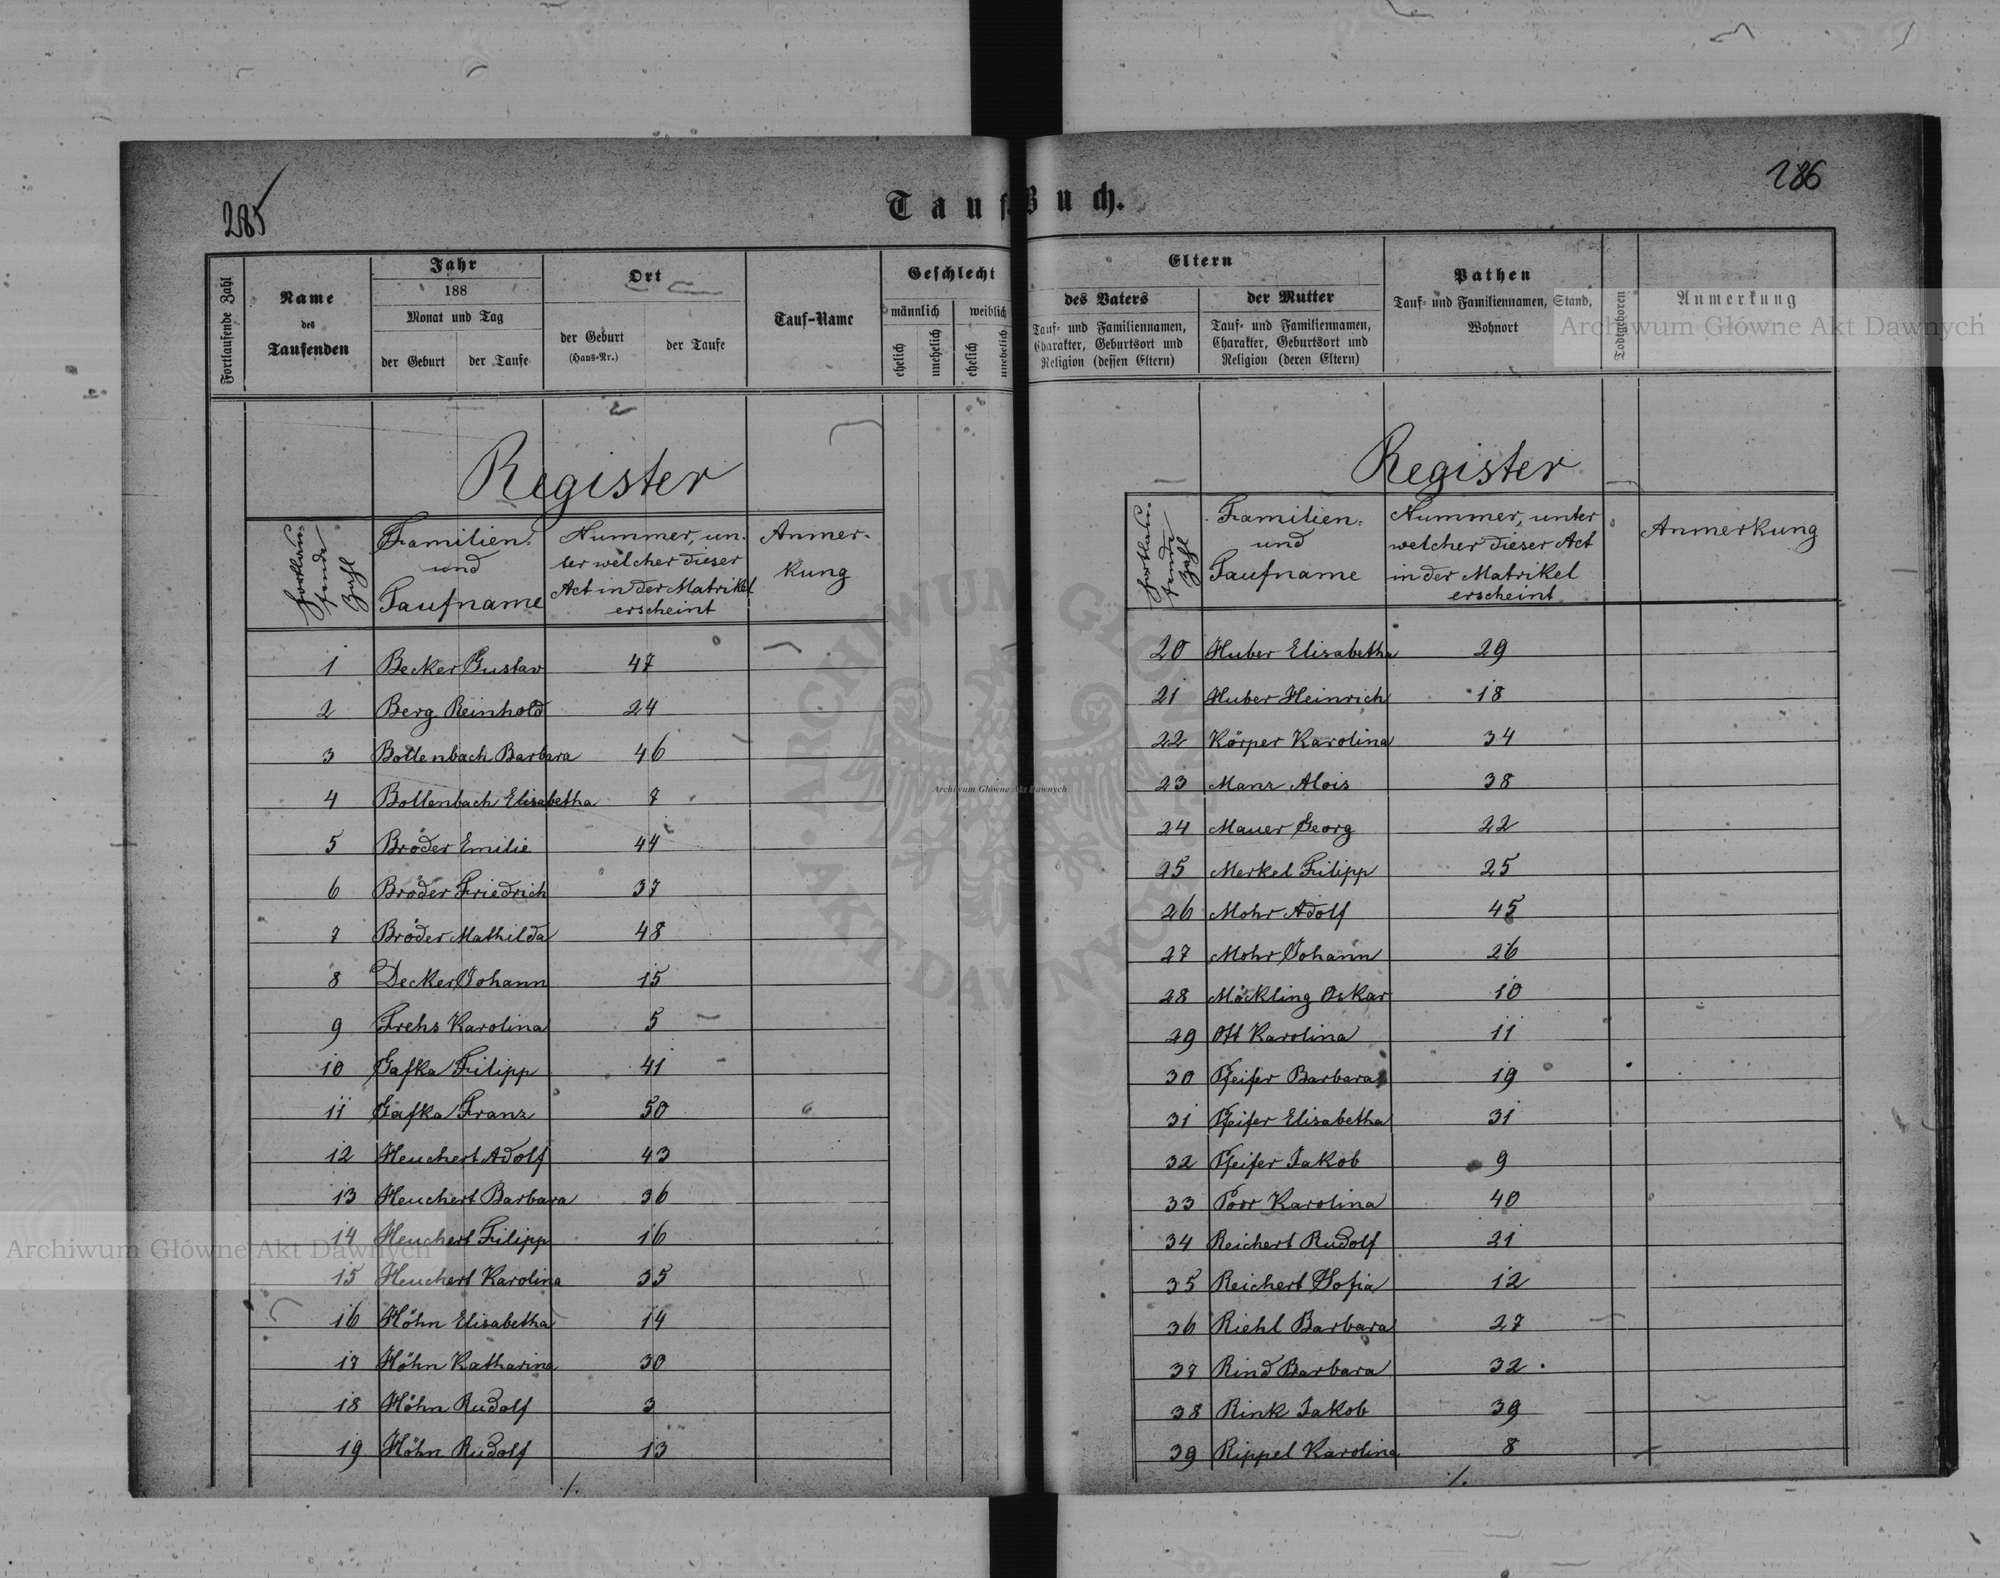 285
286
Tauf-Buch.
Fortlaufende Zahl
Name
des
Taufenden
Jahr
188
Monat und Tag
der Geburt
der Taufe
Ort
der Geburt
(Haus-Nr.)
der Taufe
Tauf-Name
Geschlecht
männlich
weiblich
ehelich
unehelich
ehelich
unehelich
Eltern
des Vaters
Tauf- und Familiennamen,
Charakter, Geburtsort und
Religion (dessen Eltern)
der Mutter
Tauf- und Familiennamen,
Charakter, Geburtsort und
Religion (deren Eltern)
Pathen
Tauf- und Familiennamen, Stand,
Wohnort
Todtgeboren
Anmerkung
Archiwum Główne Akt Dawnych
Register
Fortlau-
fende
Zahl
Familien-
und
Taufname
Nummer, un-
ter welcher dieser
Act in der Matrikel
erscheint
Anmer-
kung
1 Becker Gustav 47
2 Berg Reinhold 24
3 Bollenbach Barbara 46
4 Bollenbach Elisabetha 7
5 Bröder Emilie 44
6 Bröder Friedrich 37
7 Bröder Mathilda 48
8 Decker Johann 15
9 Frehs Karolina 5
10 Gafka Filipp 41
11 Gafka Franz 50
12 Heuchert Adolf 43
13 Heuchert Barbara 36
14 Heuchert Filipp 16
15 Heuchert Karolina 35
16 Höhn Elisabetha 14
17 Höhn Katharina 30
18 Höhn Rudolf 3
19 Höhn Rudolf 13
./.
Register
Fortlau-
fende
Zahl
Familien-
und
Taufname
Nummer, unter
welcher dieser Act
in der Matrikel
erscheint
Anmerkung
20 Huber Elisabetha 29
21 Huber Heinrich 18
22 Körper Karolina 34
23 Manz Alois 38
24 Mauer Georg 22
25 Merkel Filipp 25
26 Mohr Adolf 45
27 Mohr Johann 26
28 Möckling Oskar 10
29 Ott Karolina 11
30 Pfeifer Barbara 19
31 Pfeifer Elisabetha 31
32 Pfeifer Jakob 9
33 Poor Karolina 40
34 Reichert Rudolf 21
35 Reichert Sofia 12
36 Riehl Barbara 27
37 Rind Barbara 32
38 Rink Jakob 39
39 Rippel Karolina 8
./.
Archiwum Główne Akt Dawnych
Archiwum Główne Akt Dawnych
ARCHIWUM GŁÓWNE AKT DAWNYCH